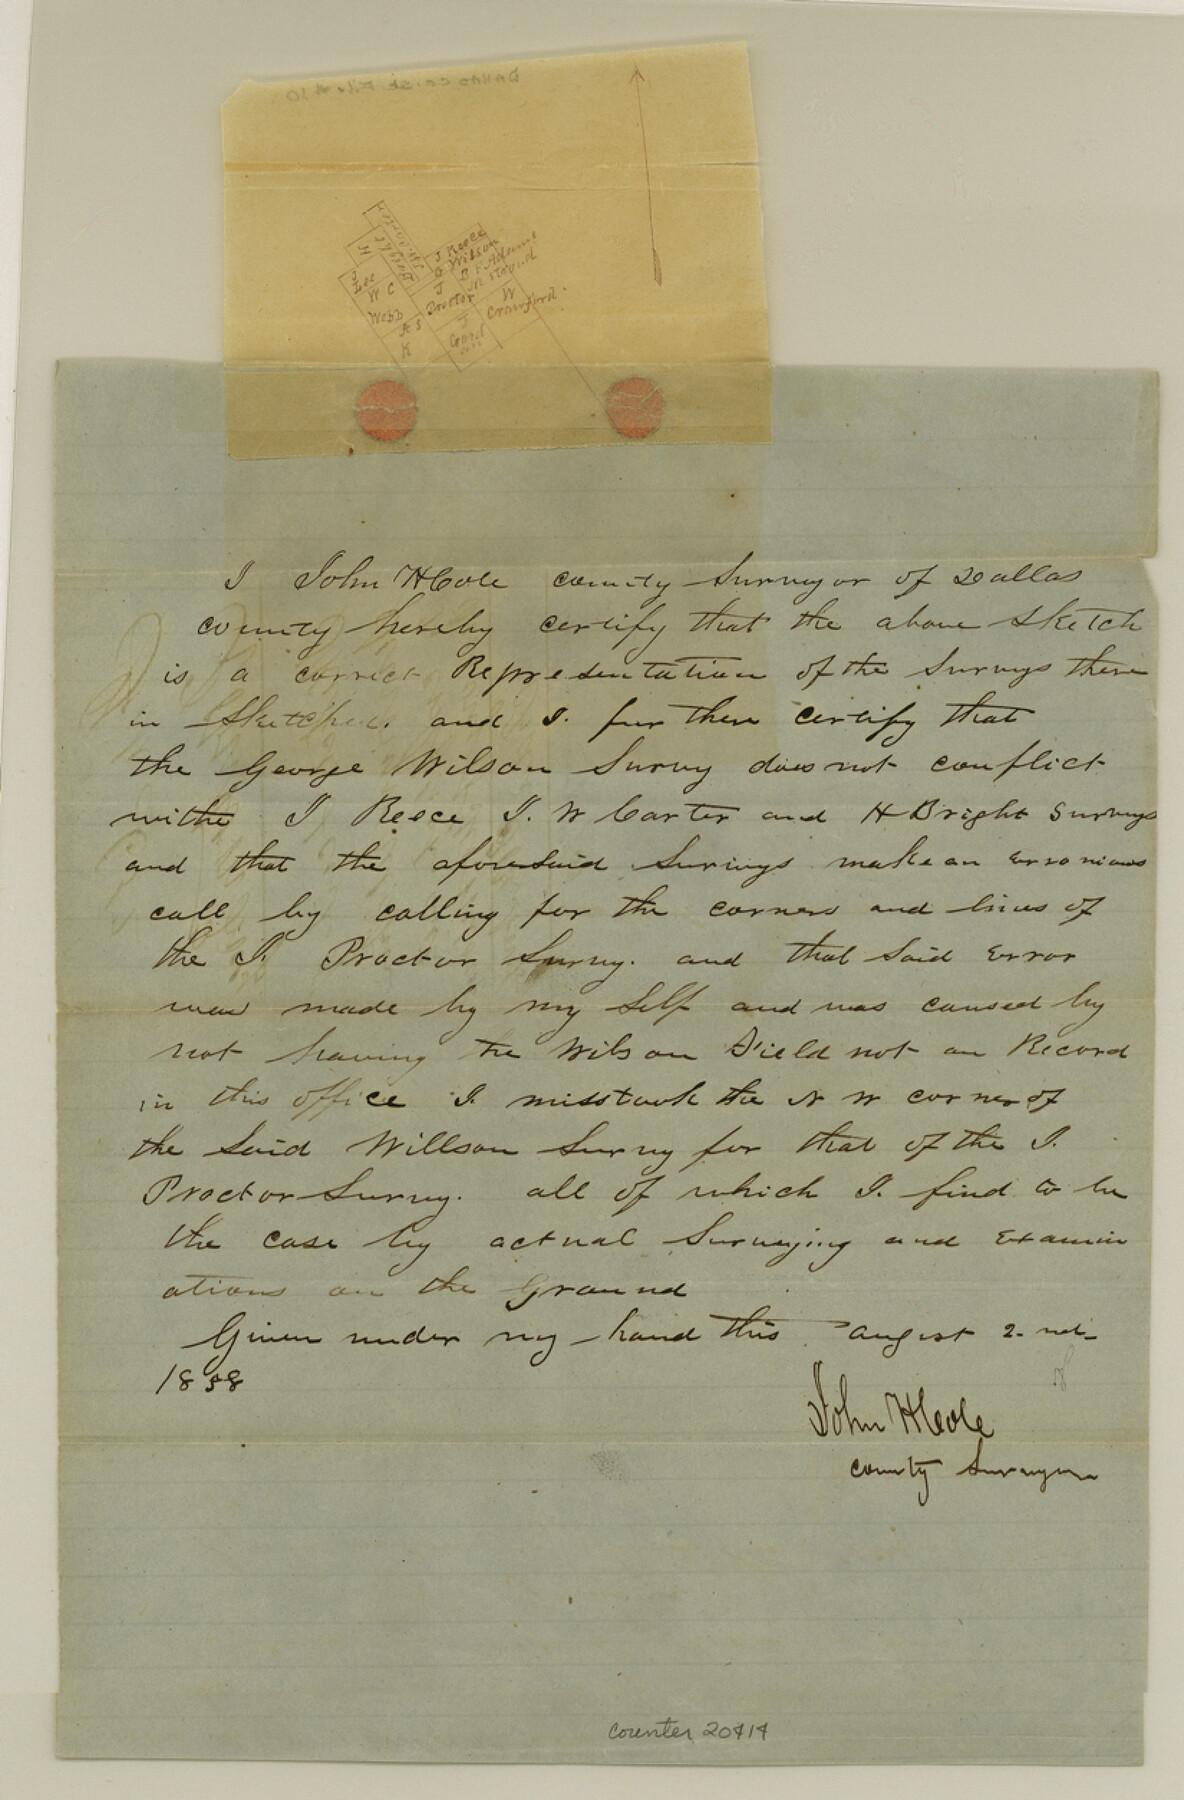 J Reece
G Wilson
B F Adams
J M Stroud
J W Carter
H Bright
J Lee
W C
Webb
J
Proctor
W
Crawford
A S
K
J
Gard
I John H Cole county Surveyor of Dallas
county hereby certify that the above Sketch
is a correct Representation of the Surveys there
in Sketched. and I. fur there certify that
the George Wilson Survey does not conflict
withe J Reece J. W Carter and H Bright Surveys
and that the aforesaid Surveys make an erronious
call by calling for the corners and lines of
the J. Proctor Survey. and that Said Error
was made by my Self and was caused by
not having the Wilson Field not on Record
in this office I. misstook the N W corner of
the Said Willson Survey for that of the J.
Proctor Survey. all of which I. find to be
the case by actual Surveying and Examin
ations on the Ground
Given under my hand this August 2-nd-
1858
John H Cole
county Surveyor
counter 20414